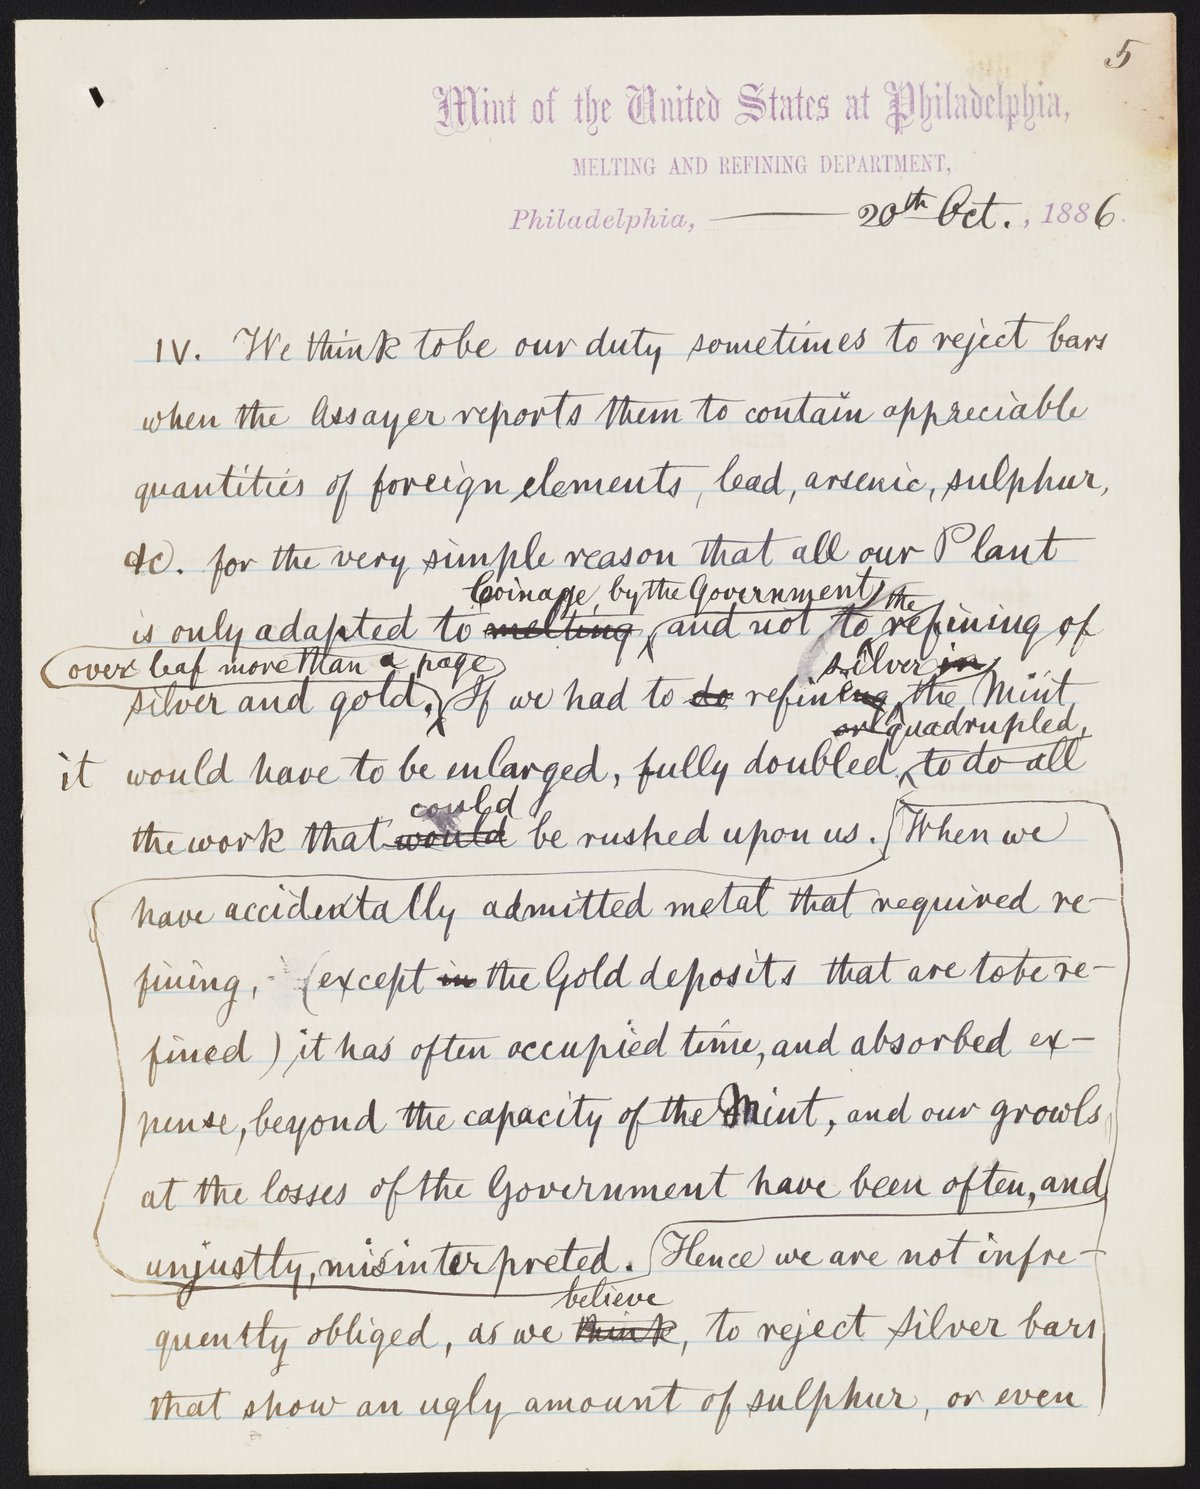 5
Mint of the United States at Philadelphia,
MELTING AND REFINING DEPARTMENT,
Philadelphia, 20th Oct., 1886.
IV. We think to be our duty sometimes to reject bars
when the Assayer reports them to contain appreciable
quantities of foreign elements, lead, arsenic, sulphur,
&c. for the very simple reason that all our Plant
Coinage, by the Government, the
is only adapted to melting, and not to refining of
over leaf more than a page silver in
silver and gold. If we had to do refining, the Mint
or quadrupled,
it would have to be enlarged, fully doubled, to do all
could
the work that would be rushed upon us. When we
have accidentally admitted metal that required re-
fining, (except in the Gold deposits that are to be re-
fined) it has often occupied time, and absorbed ex-
pense, beyond the capacity of the Mint, and our growls
at the losses of the Government have been often, and
unjustly, misinterpreted. Hence we are not infre-
believe
quently obliged, as we think, to reject silver bars
that show an ugly amount of sulphur, or even